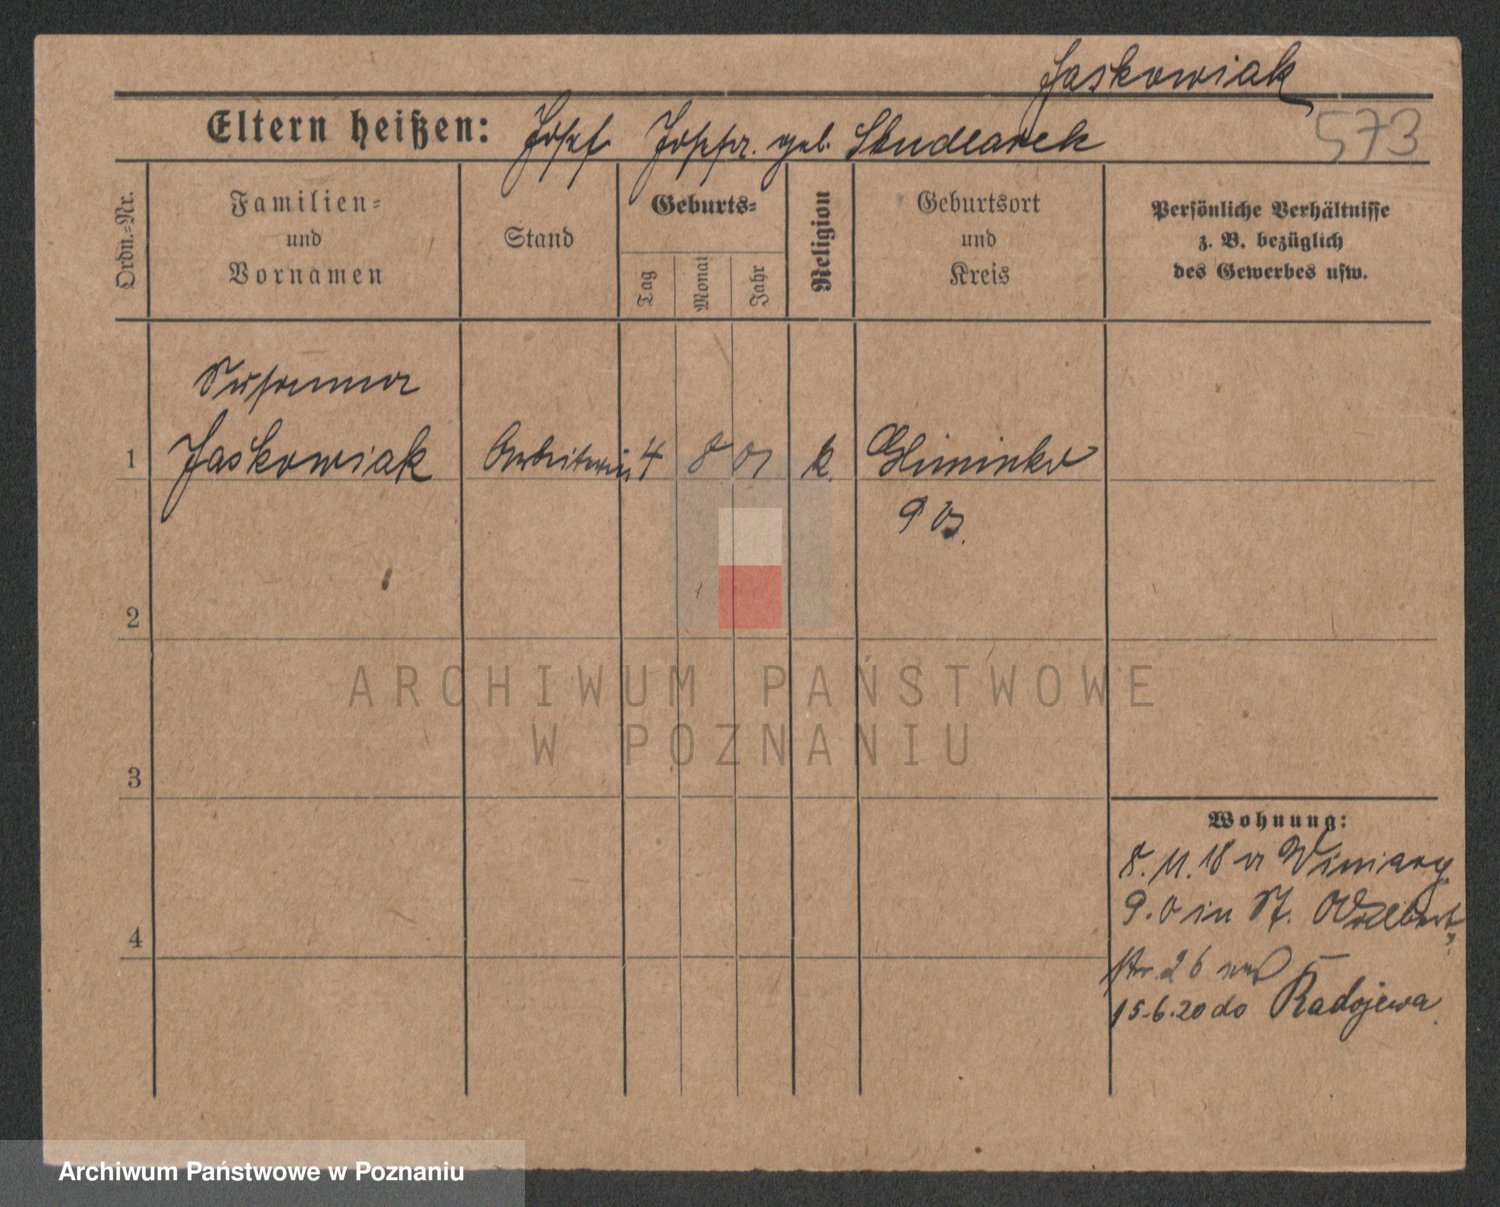 Jaskowiak
Eltern heißen: Josef Josefa. geb. Studlarek
573
Ordn.-Nr.
Familien-
und
Vornamen
Stand
Geburts-
Tag
Monat
Jahr
Religion
Geburtsort
und
Kreis
Persönliche Verhältnisse
z. B. bezüglich
des Gewerbes usw.
Susanna
1 Jaskowiak Arbeiterin 4 8 01 k.
2
3
4
Wohnung:
8. 11. 18 a Winiary
9. in St. Adalbert-
str. 26
15.6.20 do Radojewa
ARCHIWUM PAŃSTWOWE
W POZNANIU
Archiwum Państwowe w Poznaniu